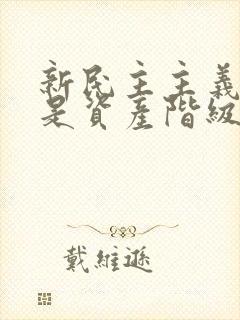 新民主主義
是資產階級
戴維遜